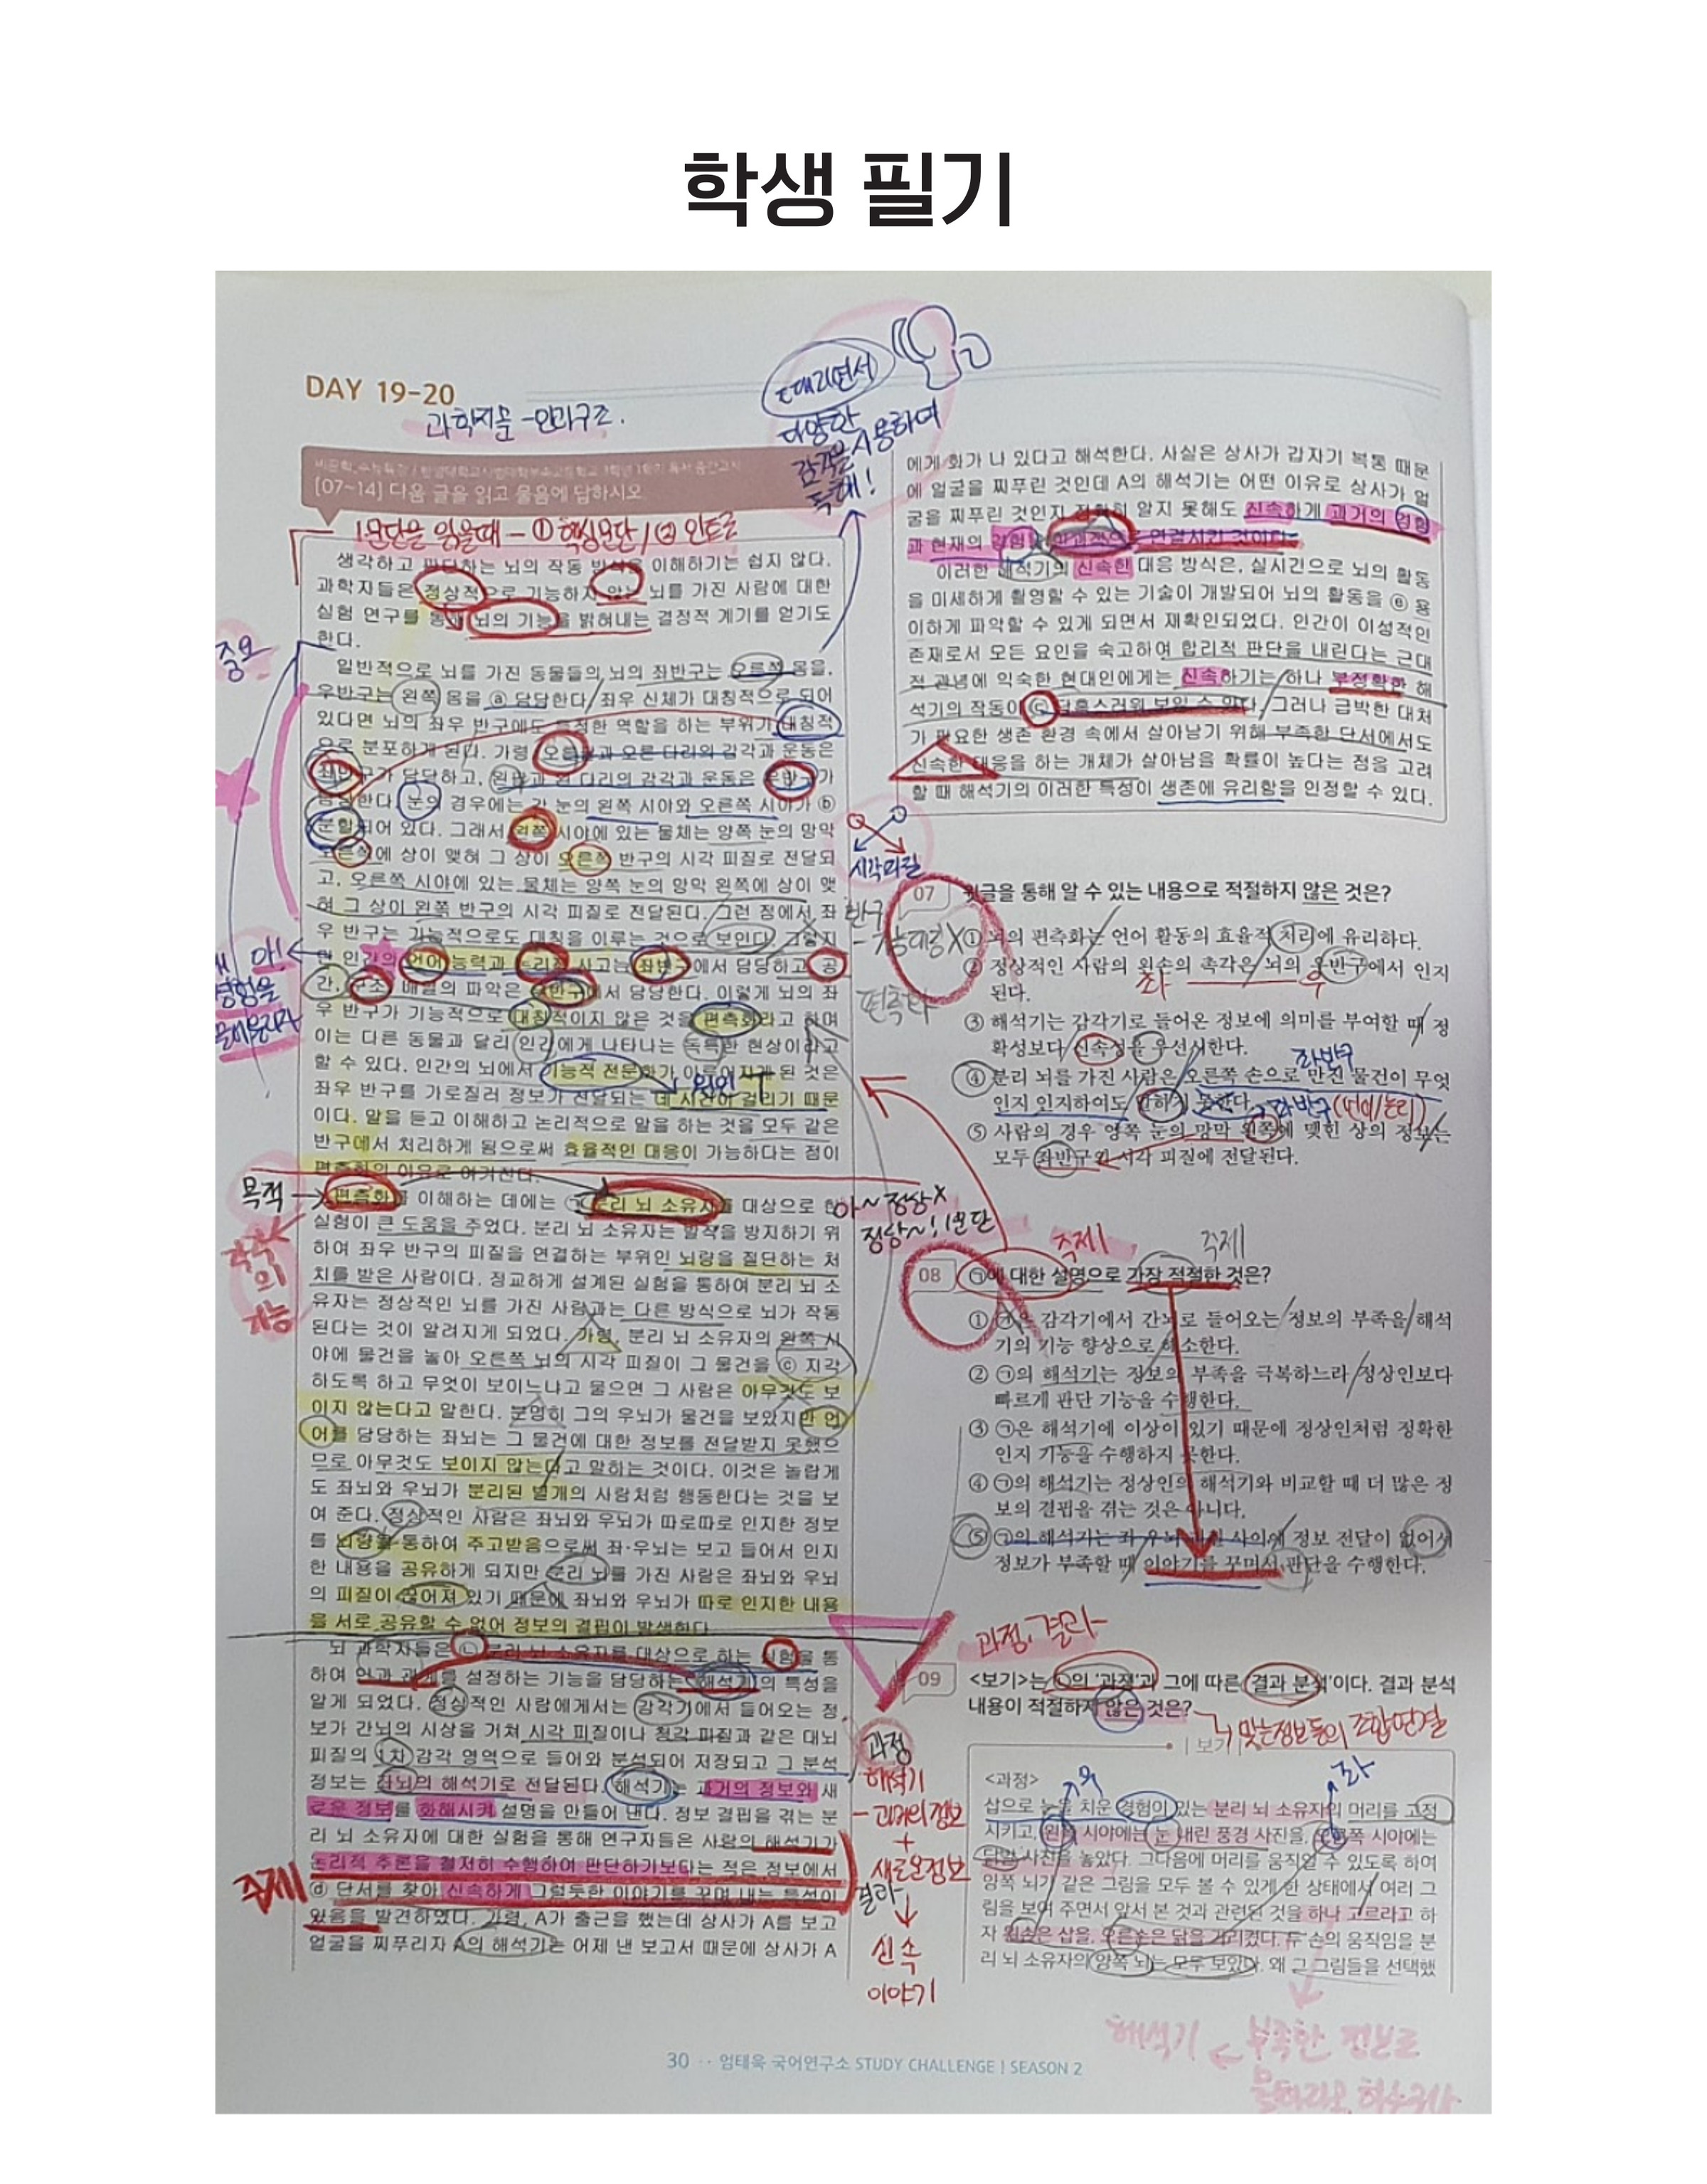 학생 필기
DAY 19-20
과학지문 - 인과구조.
때리면서
다양한
감각을 사용하여
독해!
[07~14] 다음 글을 읽고 물음에 답하시오
1문단을 읽을때 - ① 핵심문단 / ② 인트로
생각하고 판단하는 뇌의 작동 방식을 이해하기는 쉽지 않다.
과학자들은 정상적으로 기능하지 않는 뇌를 가진 사람에 대한
실험 연구를 통해 뇌의 기능을 밝혀내는 결정적 계기를 얻기도
한다.
중요
일반적으로 뇌를 가진 동물들의 뇌의 좌반구는 오른쪽 몸을,
우반구는 왼쪽 몸을 ⓐ 담당한다. 좌우 신체가 대칭적으로 되어
있다면 뇌의 좌우 반구에도 특정한 역할을 하는 부위가 대칭적
으로 분포하게 된다. 가령 오른팔과 오른 다리의 감각과 운동은
좌반구가 담당하고, 왼팔과 왼 다리의 감각과 운동은 우반구가
담당한다. 눈의 경우에는 각 눈의 왼쪽 시야와 오른쪽 시야가 ⓑ
분할되어 있다. 그래서 왼쪽 시야에 있는 물체는 양쪽 눈의 망막
오른쪽에 상이 맺혀 그 상이 오른쪽 반구의 시각 피질로 전달되
고, 오른쪽 시야에 있는 물체는 양쪽 눈의 망막 왼쪽에 상이 맺
혀 그 상이 왼쪽 반구의 시각 피질로 전달된다. 그런 점에서 좌
우 반구는 기능적으로도 대칭을 이루는 것으로 보인다. 그렇지
만 인간의 언어 능력과 논리적 사고는 좌반구에서 담당하고 공
간, 구조 배열의 파악은 우반구에서 담당한다. 이렇게 뇌의 좌
우 반구가 기능적으로 대칭적이지 않은 것을 편측화라고 하며
이는 다른 동물과 달리 인간에게 나타나는 독특한 현상이라고
할 수 있다. 인간의 뇌에서 기능적 전문화가 이루어지게 된 것은
좌우 반구를 가로질러 정보가 전달되는 데 시간이 걸리기 때문
이다. 말을 듣고 이해하고 논리적으로 말을 하는 것을 모두 같은
반구에서 처리하게 됨으로써 효율적인 대응이 가능하다는 점이
편측화의 이유로 여겨진다.
아!
원인
시각피질
반구
편측화
목적 →
편측화를 이해하는 데에는 ㉠ 분리 뇌 소유자를 대상으로 한
실험이 큰 도움을 주었다. 분리 뇌 소유자는 발작을 방지하기 위
하여 좌우 반구의 피질을 연결하는 부위인 뇌량을 절단하는 처
치를 받은 사람이다. 정교하게 설계된 실험을 통하여 분리 뇌 소
유자는 정상적인 뇌를 가진 사람과는 다른 방식으로 뇌가 작동
된다는 것이 알려지게 되었다. 가령, 분리 뇌 소유자의 왼쪽 시
야에 물건을 놓아 오른쪽 뇌의 시각 피질이 그 물건을 ⓒ 지각
하도록 하고 무엇이 보이느냐고 물으면 그 사람은 아무것도 보
이지 않는다고 말한다. 분명히 그의 우뇌가 물건을 보았지만 언
어를 담당하는 좌뇌는 그 물건에 대한 정보를 전달받지 못했으
므로 아무것도 보이지 않는다고 말하는 것이다. 이것은 놀랍게
도 좌뇌와 우뇌가 분리된 별개의 사람처럼 행동한다는 것을 보
여 준다. 정상적인 사람은 좌뇌와 우뇌가 따로따로 인지한 정보
를 뇌량을 통하여 주고받음으로써 좌·우뇌는 보고 들어서 인지
한 내용을 공유하게 되지만 분리 뇌를 가진 사람은 좌뇌와 우뇌
의 피질이 끊어져 있기 때문에 좌뇌와 우뇌가 따로 인지한 내용
을 서로 공유할 수 없어 정보의 결핍이 발생한다.
각각
의
기능
아~ 정상X
정상~! 1문단
뇌 과학자들은 ㉡ 분리 뇌 소유자를 대상으로 하는 실험을 통
하여 인과 관계를 설정하는 기능을 담당하는 해석기의 특성을
알게 되었다. 정상적인 사람에게서는 감각기에서 들어오는 정
보가 간뇌의 시상을 거쳐 시각 피질이나 청각 피질과 같은 대뇌
피질의 1차 감각 영역으로 들어와 분석되어 저장되고 그 분석
정보는 좌뇌의 해석기로 전달된다. 해석기는 과거의 정보와 새
로운 정보를 화해시켜 설명을 만들어 낸다. 정보 결핍을 겪는 분
리 뇌 소유자에 대한 실험을 통해 연구자들은 사람의 해석기가
논리적 추론을 철저히 수행하여 판단하기보다는 적은 정보에서
ⓓ 단서를 찾아 신속하게 그럴듯한 이야기를 꾸며 내는 특성이
있음을 발견하였다. 가령, A가 출근을 했는데 상사가 A를 보고
얼굴을 찌푸리자 A의 해석기는 어제 낸 보고서 때문에 상사가 A
주제
과정
해석기
- 과거의 정보
+
새로운정보
결과
신속
이야기
에게 화가 나 있다고 해석한다. 사실은 상사가 갑자기 복통 때문
에 얼굴을 찌푸린 것인데 A의 해석기는 어떤 이유로 상사가 얼
굴을 찌푸린 것인지 정확히 알지 못해도 신속하게 과거의 경험
과 현재의 경험을 인과적으로 연결시킨 것이다.
이러한 해석기의 신속한 대응 방식은, 실시간으로 뇌의 활동
을 미세하게 촬영할 수 있는 기술이 개발되어 뇌의 활동을 ⓔ 용
이하게 파악할 수 있게 되면서 재확인되었다. 인간이 이성적인
존재로서 모든 요인을 숙고하여 합리적 판단을 내린다는 근대
적 관념에 익숙한 현대인에게는 신속하기는 하나 부정확한 해
석기의 작동이 당혹스러워 보일 수 있다. 그러나 급박한 대처
가 필요한 생존 환경 속에서 살아남기 위해 부족한 단서에서도
신속한 대응을 하는 개체가 살아남을 확률이 높다는 점을 고려
할 때 해석기의 이러한 특성이 생존에 유리함을 인정할 수 있다.
07 윗글을 통해 알 수 있는 내용으로 적절하지 않은 것은?
① 뇌의 편측화는 언어 활동의 효율적 처리에 유리하다.
② 정상적인 사람의 왼손의 촉각은 뇌의 우반구에서 인지
된다.
좌 우
③ 해석기는 감각기로 들어온 정보에 의미를 부여할 때 정
확성보다 신속성을 우선시한다.
좌반구
④ 분리 뇌를 가진 사람은 오른쪽 손으로 만진 물건이 무엇
인지 인지하여도 말하지 못한다.
좌반구(언어/논리)
⑤ 사람의 경우 양쪽 눈의 망막 왼쪽에 맺힌 상의 정보는
모두 좌반구의 시각 피질에 전달된다.
주제 주제
08 ㉠에 대한 설명으로 가장 적절한 것은?
① ㉠은 감각기에서 간뇌로 들어오는 정보의 부족을 해석
기의 기능 향상으로 해소한다.
② ㉠의 해석기는 정보의 부족을 극복하느라 정상인보다
빠르게 판단 기능을 수행한다.
③ ㉠은 해석기에 이상이 있기 때문에 정상인처럼 정확한
인지 기능을 수행하지 못한다.
④ ㉠의 해석기는 정상인의 해석기와 비교할 때 더 많은 정
보의 결핍을 겪는 것은 아니다.
⑤ ㉠의 해석기는 좌·우뇌 피질 사이에 정보 전달이 없어서
정보가 부족할 때 이야기를 꾸며서 판단을 수행한다.
과정, 결과
09 <보기>는 ㉡의 '과정'과 그에 따른 '결과 분석'이다. 결과 분석
내용이 적절하지 않은 것은?
맞는정보들의 조합연결
보기
<과정>
우 좌
삽으로 눈을 치운 경험이 있는 분리 뇌 소유자의 머리를 고정
시키고, 왼쪽 시야에는 눈 내린 풍경 사진을, 오른쪽 시야에는
닭발 사진을 놓았다. 그다음에 머리를 움직일 수 있도록 하여
양쪽 뇌가 같은 그림을 모두 볼 수 있게 한 상태에서 여러 그
림을 보여 주면서 앞서 본 것과 관련된 것을 하나 고르라고 하
자 왼손은 삽을, 오른손은 닭을 가리켰다. 두 손의 움직임을 분
리 뇌 소유자의 양쪽 뇌는 모두 보았다. 왜 그 그림들을 선택했
해석기 ← 부족한 정보로
30 ·· 엄태욱 국어연구소 STUDY CHALLENGE | SEASON 2